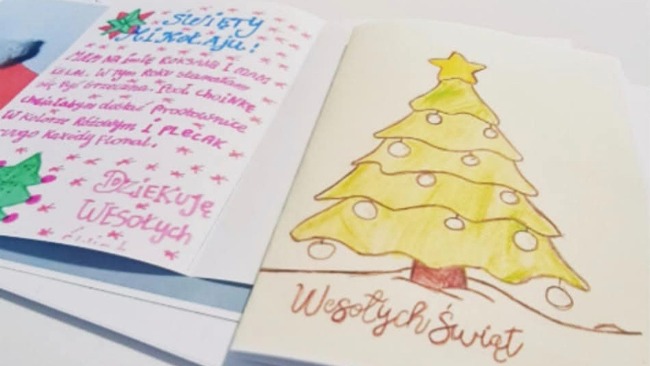 ŚWIĘTY
MIKOŁAJU!
MAM NA IMIĘ ROKSANA I MAM
LAT. W TYM ROKU STARAŁAM
SIĘ BYĆ GRZECZNA. POD CHOINKĘ
CHCIAŁABYM DOSTAĆ PROSTOWNICE
W KOLORZE RÓŻOWYM I PLECAK
FLORAL.
DZIĘKUJĘ
WESOŁYCH
Wesołych Świąt